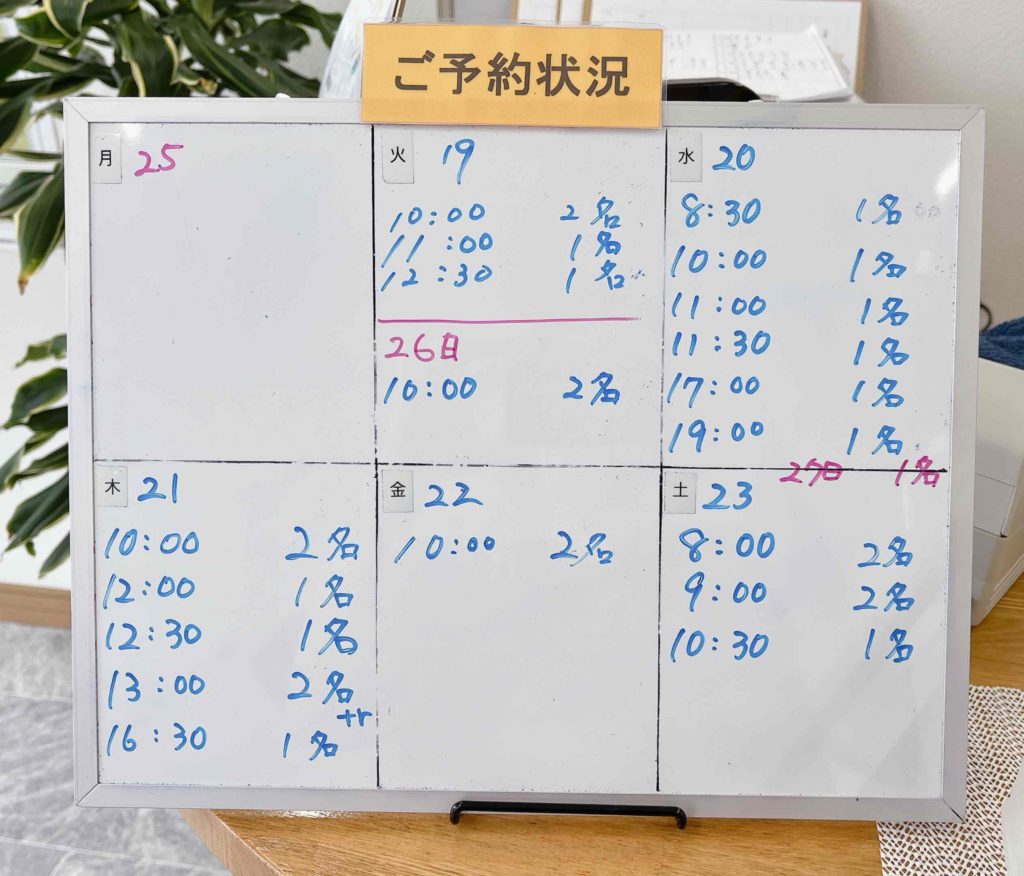 ご予約状況
月 25
火 19
10:00 2名
11:00 1名
12:30 1名
26日
10:00 2名
水 20
8:30 1名
10:00 1名
11:00 1名
11:30 1名
17:00 1名
19:00 1名
27日 1名
木 21
10:00 2名
12:00 1名
12:30 1名
13:00 2名
+r
16:30 1名
金 22
10:00 2名
土 23
8:00 2名
9:00 2名
10:30 1名